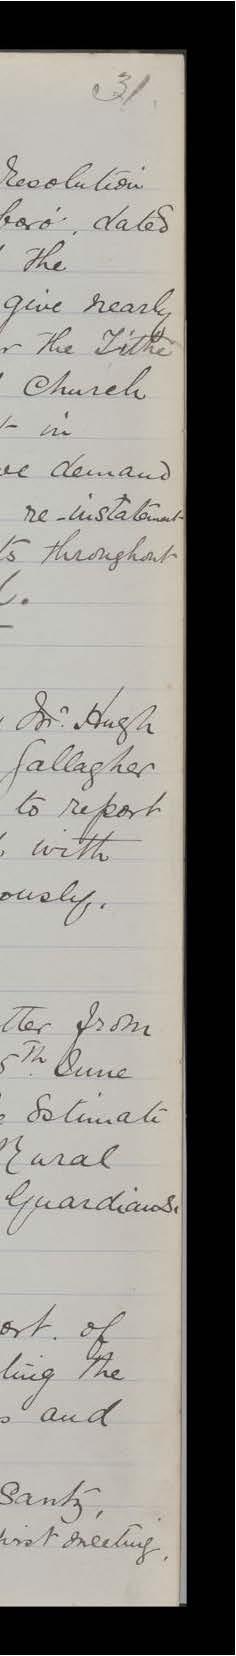 31.
Resolution
boro'. dated
the
give nearly
the Tithe
Church
in
demand
re-instatement
throughout
Mr. Hugh
Gallagher
to report
with
ously.
tter from
5th. June
Estimate
Rural
Guardians.
ort. of
ling the
and
first meeting.